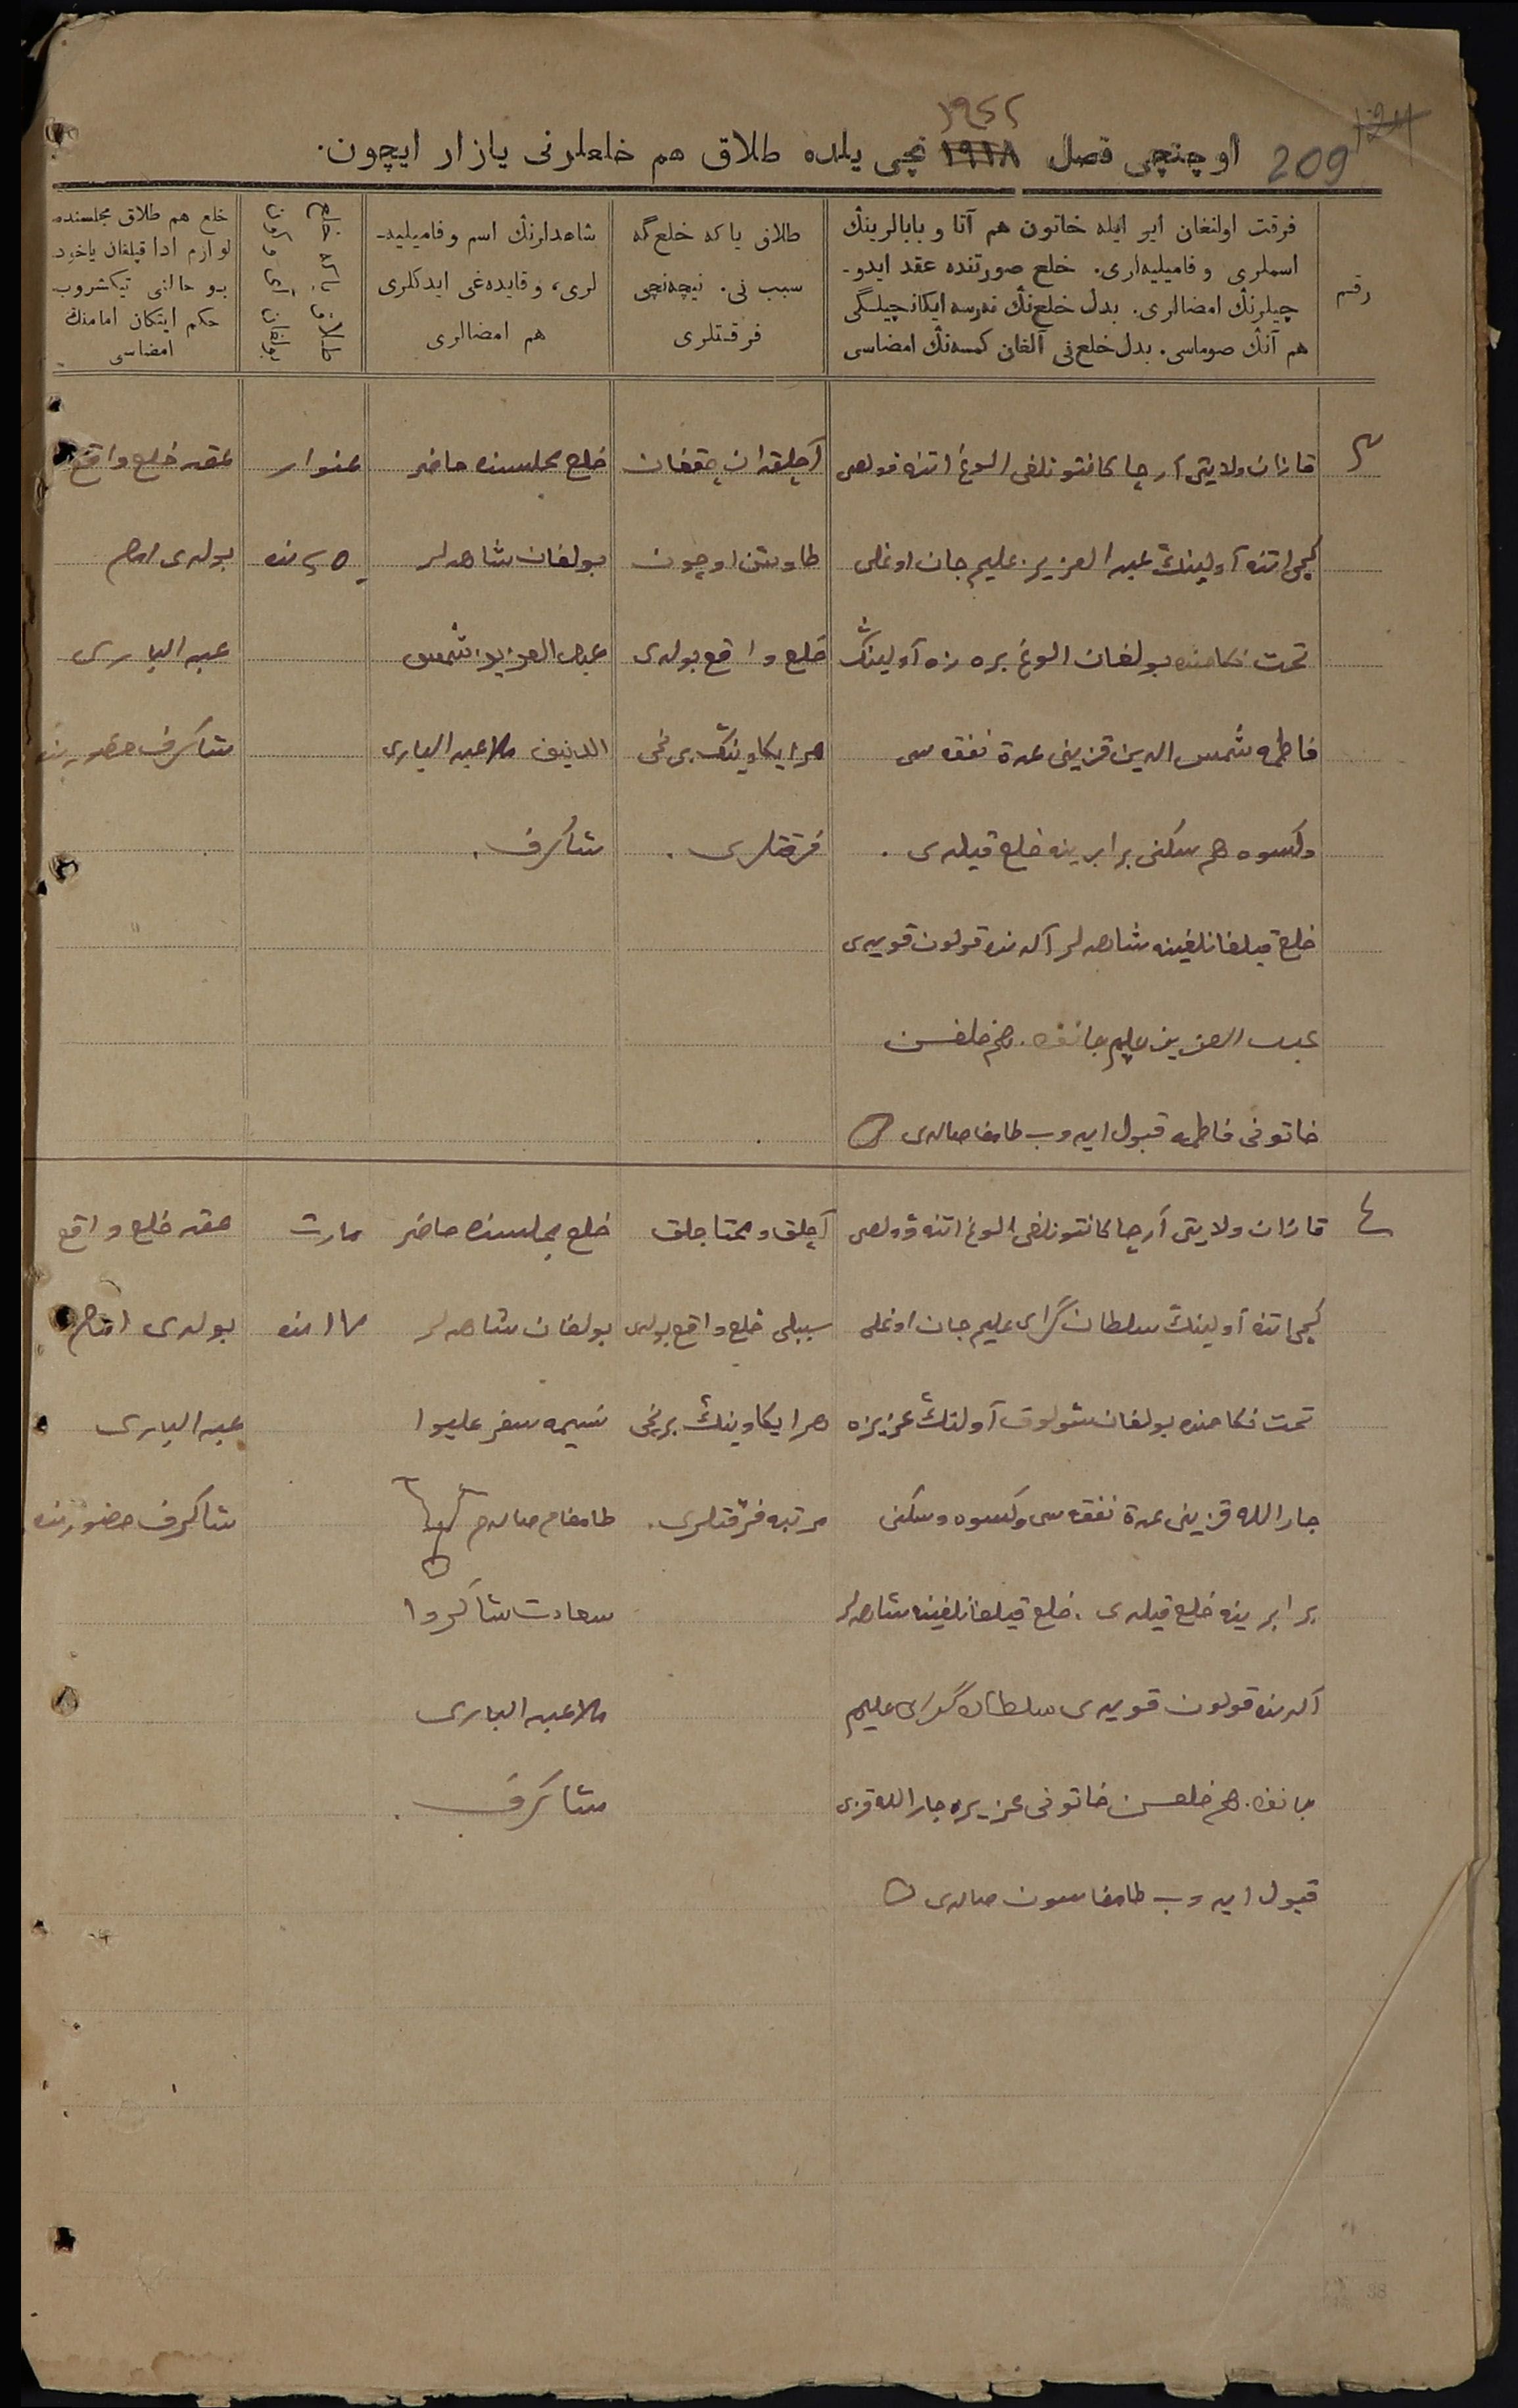 ١٩٢٢
209 اوچنچی فصل ١٩١٨ نچی یلده طلاق هم خلعلرنی یازار ایچون.
رقم
فرقت اولنغان ایر ایله خاتون هم آتا و بابالرینڭ
اسملری و فامیلیه‌لری. خلع صورتنده عقد ایدو-
چیلرنڭ امضالری. بدل خلع‌نڭ نه‌رسه ایکانچیلگی
هم آنڭ صوماسی. بدل خلع‌نی آلغان کمسه‌نڭ امضاسی
طلاق یا که خلع گه
سبب نی. نیچه‌نچی
فرقتلری
شاهدلرنڭ اسم و فامیلیه-
لری، و قایده‌غی ایدکلری
هم امضالری
خلع هم طلاق مجلسنده
لوازم ادا قیلغان یاخود
بو حالنی تیکشروب
حکم ایتکان امامنڭ
امضاسی
٣
قازان ولایتی آرچا کانتونلغی الوغ اتنه ولصی
کچی اتنه آولینڭ عبد العزیز علیم جان اوغلی
تحت نکاحنده بولغان الوغ بره زه آولینڭ
فاطمه شمس الدین قزینی عدة نفقه سی
وکسوه هم سکنی برابرینه خلع قیلدی.
خلع قیلغانلغینه شاهدلر آلدنده قولون قویدی
عبد العزیز علیم جانف. هم خلعسن
خاتونی فاطمه قبول ایدوب طامغا صالدی
آچلقدان چققان
طاوش اوچون
خلع واقع بولدی
هر ایکاوینڭ برنچی
فرقتلری.
خلع مجلسنده حاضر
بولغان شاهدلر
عبد العزیز شمس
الدینف ملا عبد الباری
شاکرف.
غنوار
٢٥ نده
عقد خلع واقع
بولدی امام
عبد الباری
شاکرف حضورنده
٤
قازان ولایتی آرچا کانتونلغی الوغ اتنه وولصی
کچی اتنه آولینڭ سلطان گرای علیم جان اوغلی
تحت نکاحنده بولغان شولوق آولنڭ عزیزه
جار الله قزینی عدة نفقه سی وکسوه وسکنی
برابرینه خلع قیلدی. خلع قیلغانلغینه شاهدلر
آلدنده قولون قویدی سلطان گرای علیم
جانف. هم خلعسن خاتونی عزیزه جار الله قزی
قبول ایدوب طامغاسون صالدی
آچلق و محتاجلق
سببلی خلع واقع بولدی
هر ایکاوینڭ برنچی
مرتبه فرقتلری.
خلع مجلسنده حاضر
بولغان شاهدلر
نسیمه سفر علیوا
طامغام صالدم
سعادت شاکروا
ملا عبد الباری
شاکرف.
مارت
عقد خلع واقع
بولدی امام
عبد الباری
شاکرف حضورنده